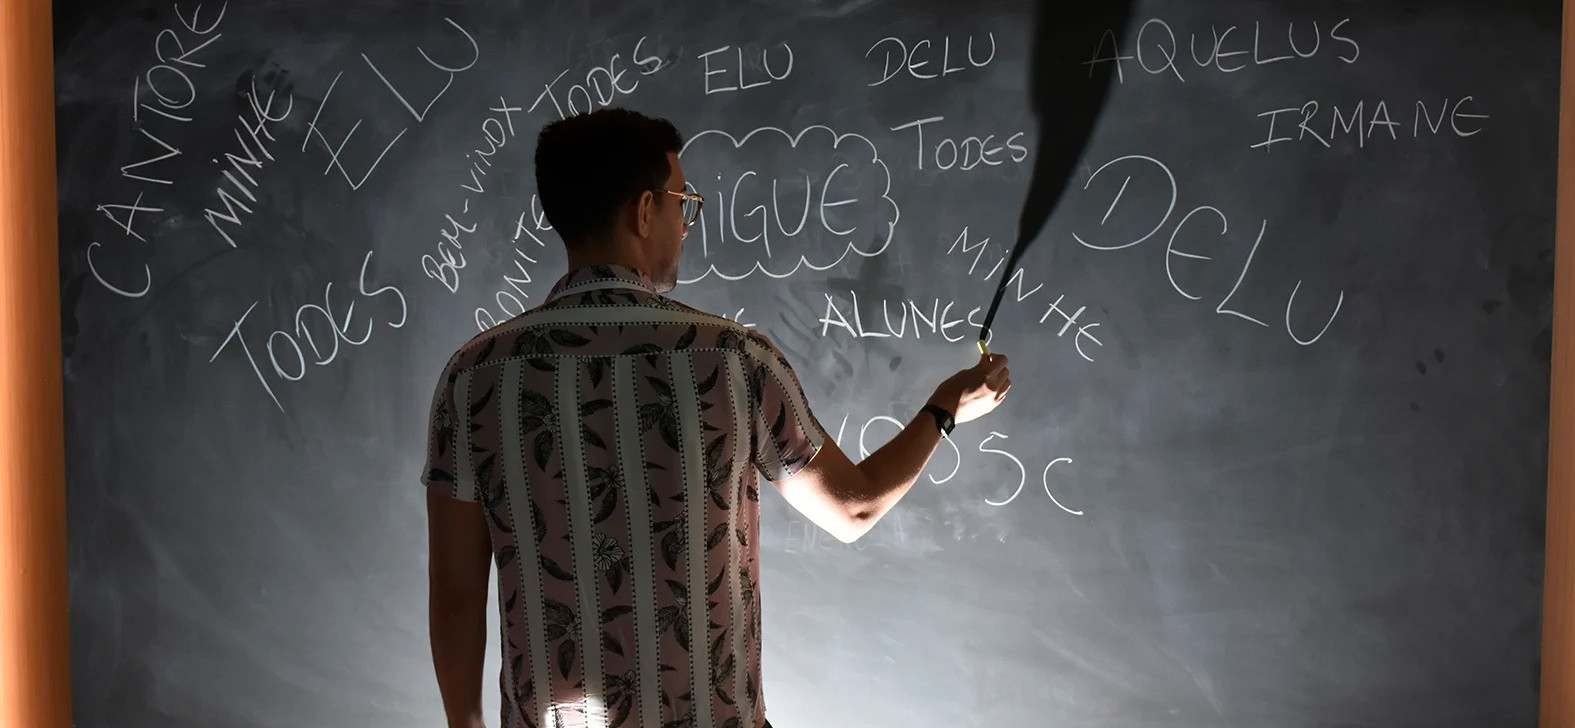 CANTORE
MINHE
ELU
BEM-VINDX
TODES
ELU
DELU
AQUELUS
IRMANE
TODES
MIGUE
DELU
MINHE
ALUNES
TODES